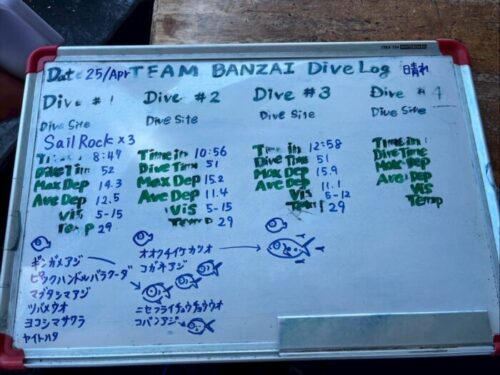 Date 25/Apr TEAM BANZAI Dive Log 晴れ
Dive # 1
Dive Site
Sail Rock x 3
Time in 8:47
Dive Time 52
Max Dep 14.3
Ave Dep 12.5
Vis 5-15
Temp 29
ギンガメアジ
ピックハンドルバラクーダ
マブタシマアジ
ツバメウオ
ヨコシマサワラ
ヤイトハタ
Dive # 2
Dive Site
Time in 10:56
Dive Time 51
Max Dep 15.2
Ave Dep 11.4
Vis 5-15
Temp 29
オオクチイケカツオ
コガネアジ
ニセフウライチョウチョウウオ
コバンアジ
Dive # 3
Dive Site
Time in 12:58
Dive Time 51
Max Dep 15.9
Ave Dep 11.1
Vis 5-12
Temp 29
Dive # 4
Dive Site
Time in
Dive Time
Max Dep
Ave Dep
Vis
Temp